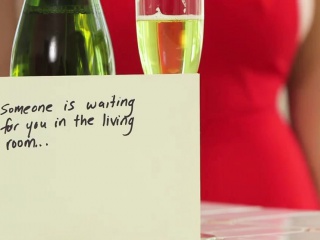 Someone is waiting
for you in the living
room...